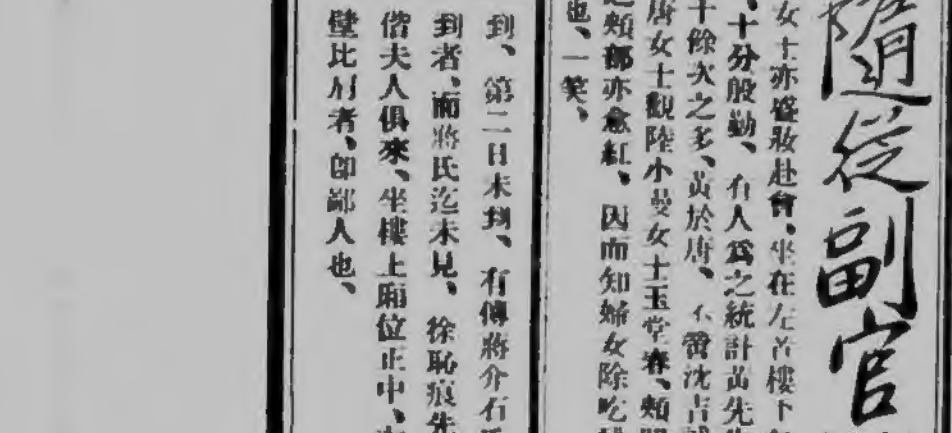 隨從副官
女士亦盛妝赴會、坐在左首樓下
十分殷勤、有人爲之統計黃先
十餘次之多、黃於唐、不啻沈吉
唐女士觀陸小曼女士玉堂春、頰
頰都亦愈紅、因而知婦女除吃
也、一笑、
到、第二日未到、有傳蔣介石
到者、而蔣氏迄未見、徐恥痕先
偕夫人俱來、坐樓上廂位正中、
肩者、卽鄙人也、